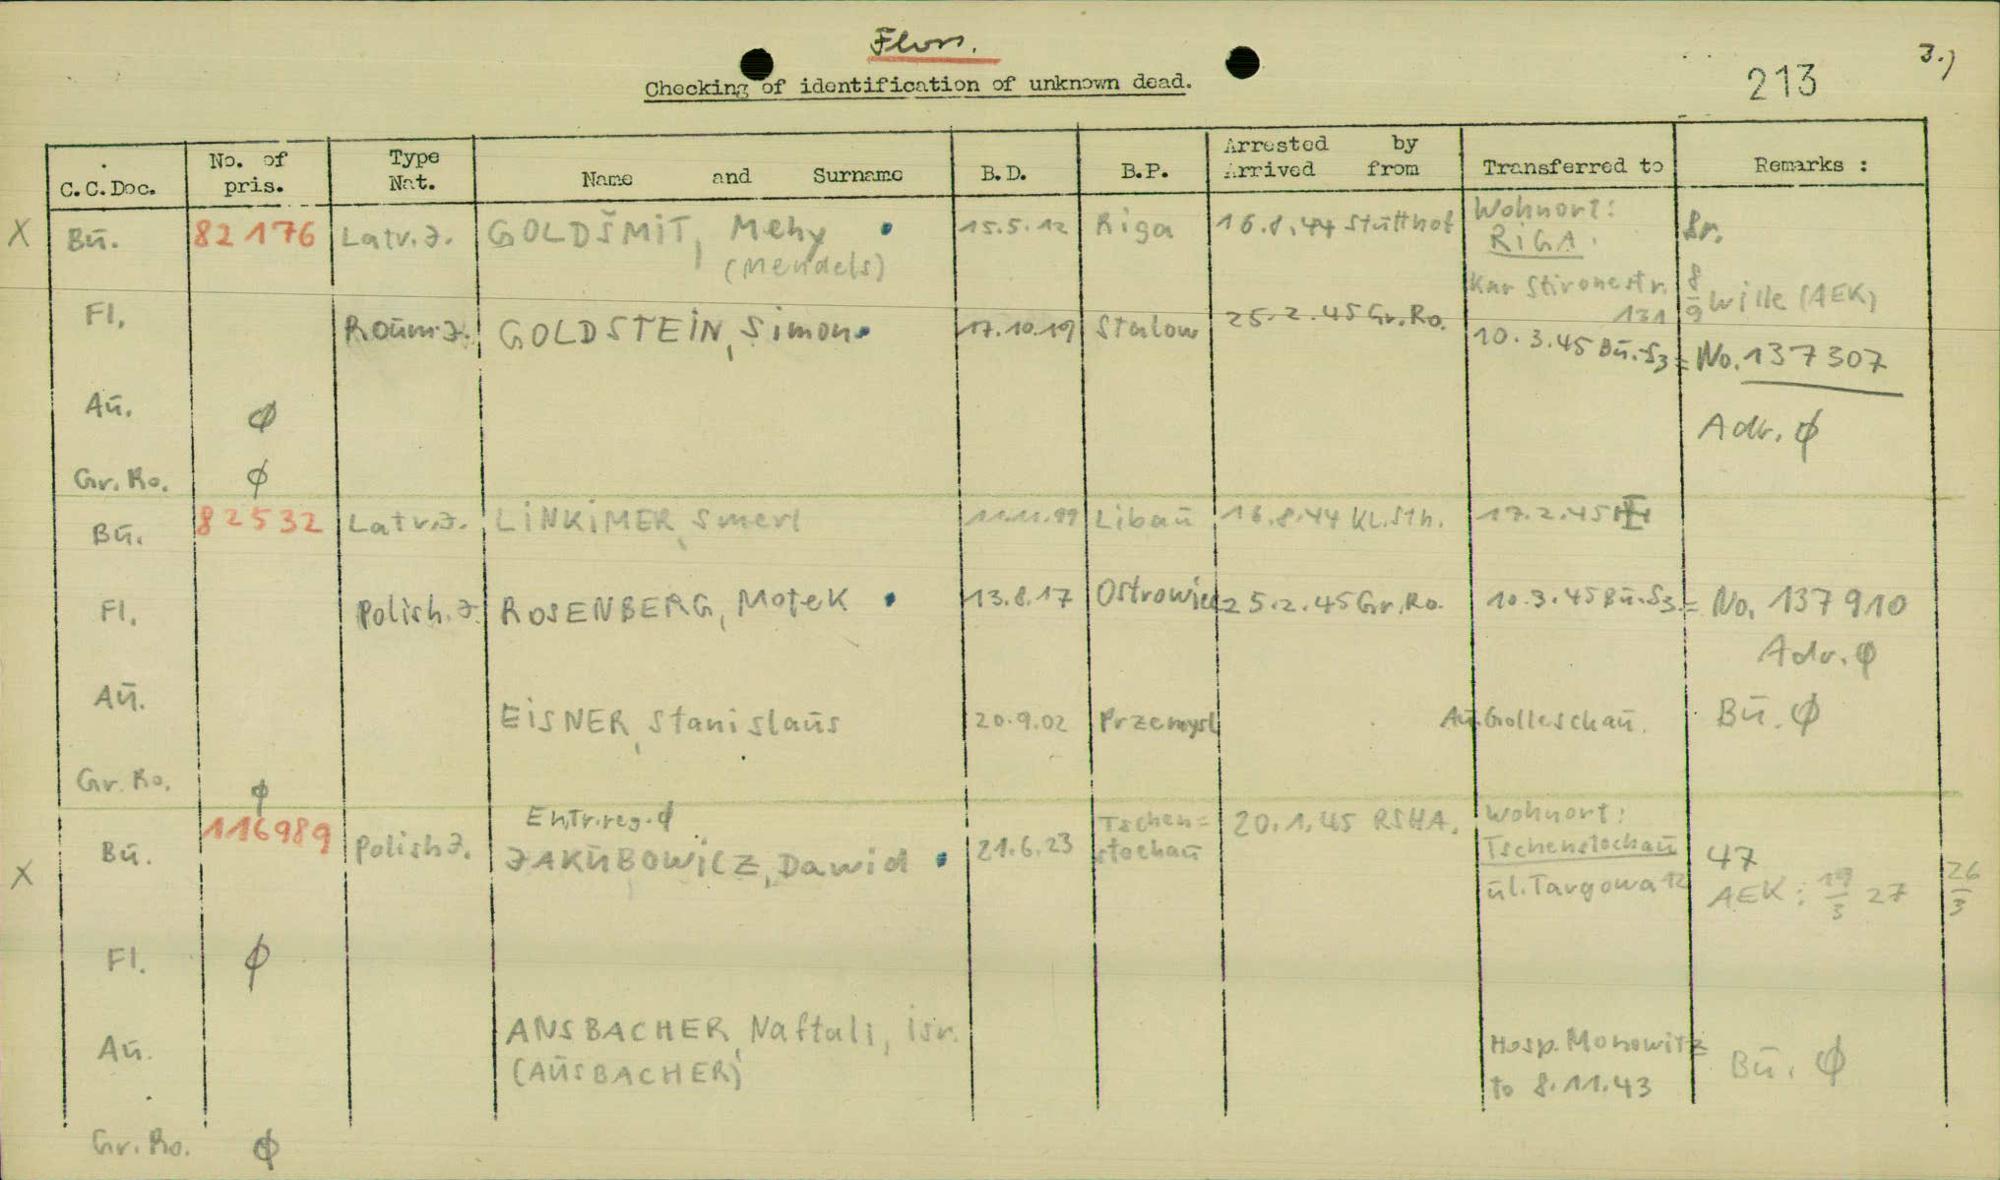 Floss.
3.)
213
Checking of identification of unknown dead.
C.C.Doc. No. of pris. Type Nat. Name and Surname B.D. B.P. Arrested by Arrived from Transferred to Remarks :
X Bū. 82176 Latv.J. GOLDŠMIT, Mehy 15.5.12 Riga 16.8.44 Stutthof Wohnort: RIGA. Sr.
(Mendels)
Stironestr. 131 8/9 Wille (AEK)
Fl. Roum.J. GOLDSTEIN, Simon 17.10.19 Stalow 25.2.45 Gr.Ro. 10.3.45 Bū.-S3 = No. 137307
Aū. ϕ Adr. ϕ
Gr.Ro. ϕ
Bū. 82532 Latv.J. LINKIMER, Smerl 11.11.99 Libaū 16.8.44 KL.Sth. 17.2.45
Fl. Polish.J. ROSENBERG, Motek 13.8.17 Ostrowiec 25.2.45 Gr.Ro. 10.3.45 Bū.-S3. = No. 137910
Adr. ϕ
Aū. EISNER, Stanislaūs 20.9.02 Przemysl Aū. Golleschaū. Bū. ϕ
Gr.Ro. ϕ
Entr.reg. ϕ
X Bū. 116989 Polish J. JAKŪBOWICZ, Dawid 21.6.23 Tschen=
stochaū 20.1.45 RSHA. Wohnort:
Tschenstochaū
ūl. Targowa 12 47
AEK: 19/3 27 26/3
Fl. ϕ
Aū. ANSBACHER, Naftali, isr. Hosp. Monowitz Bū. ϕ
(AŪSBACHER) to 8.11.43
Gr.Ro. ϕ